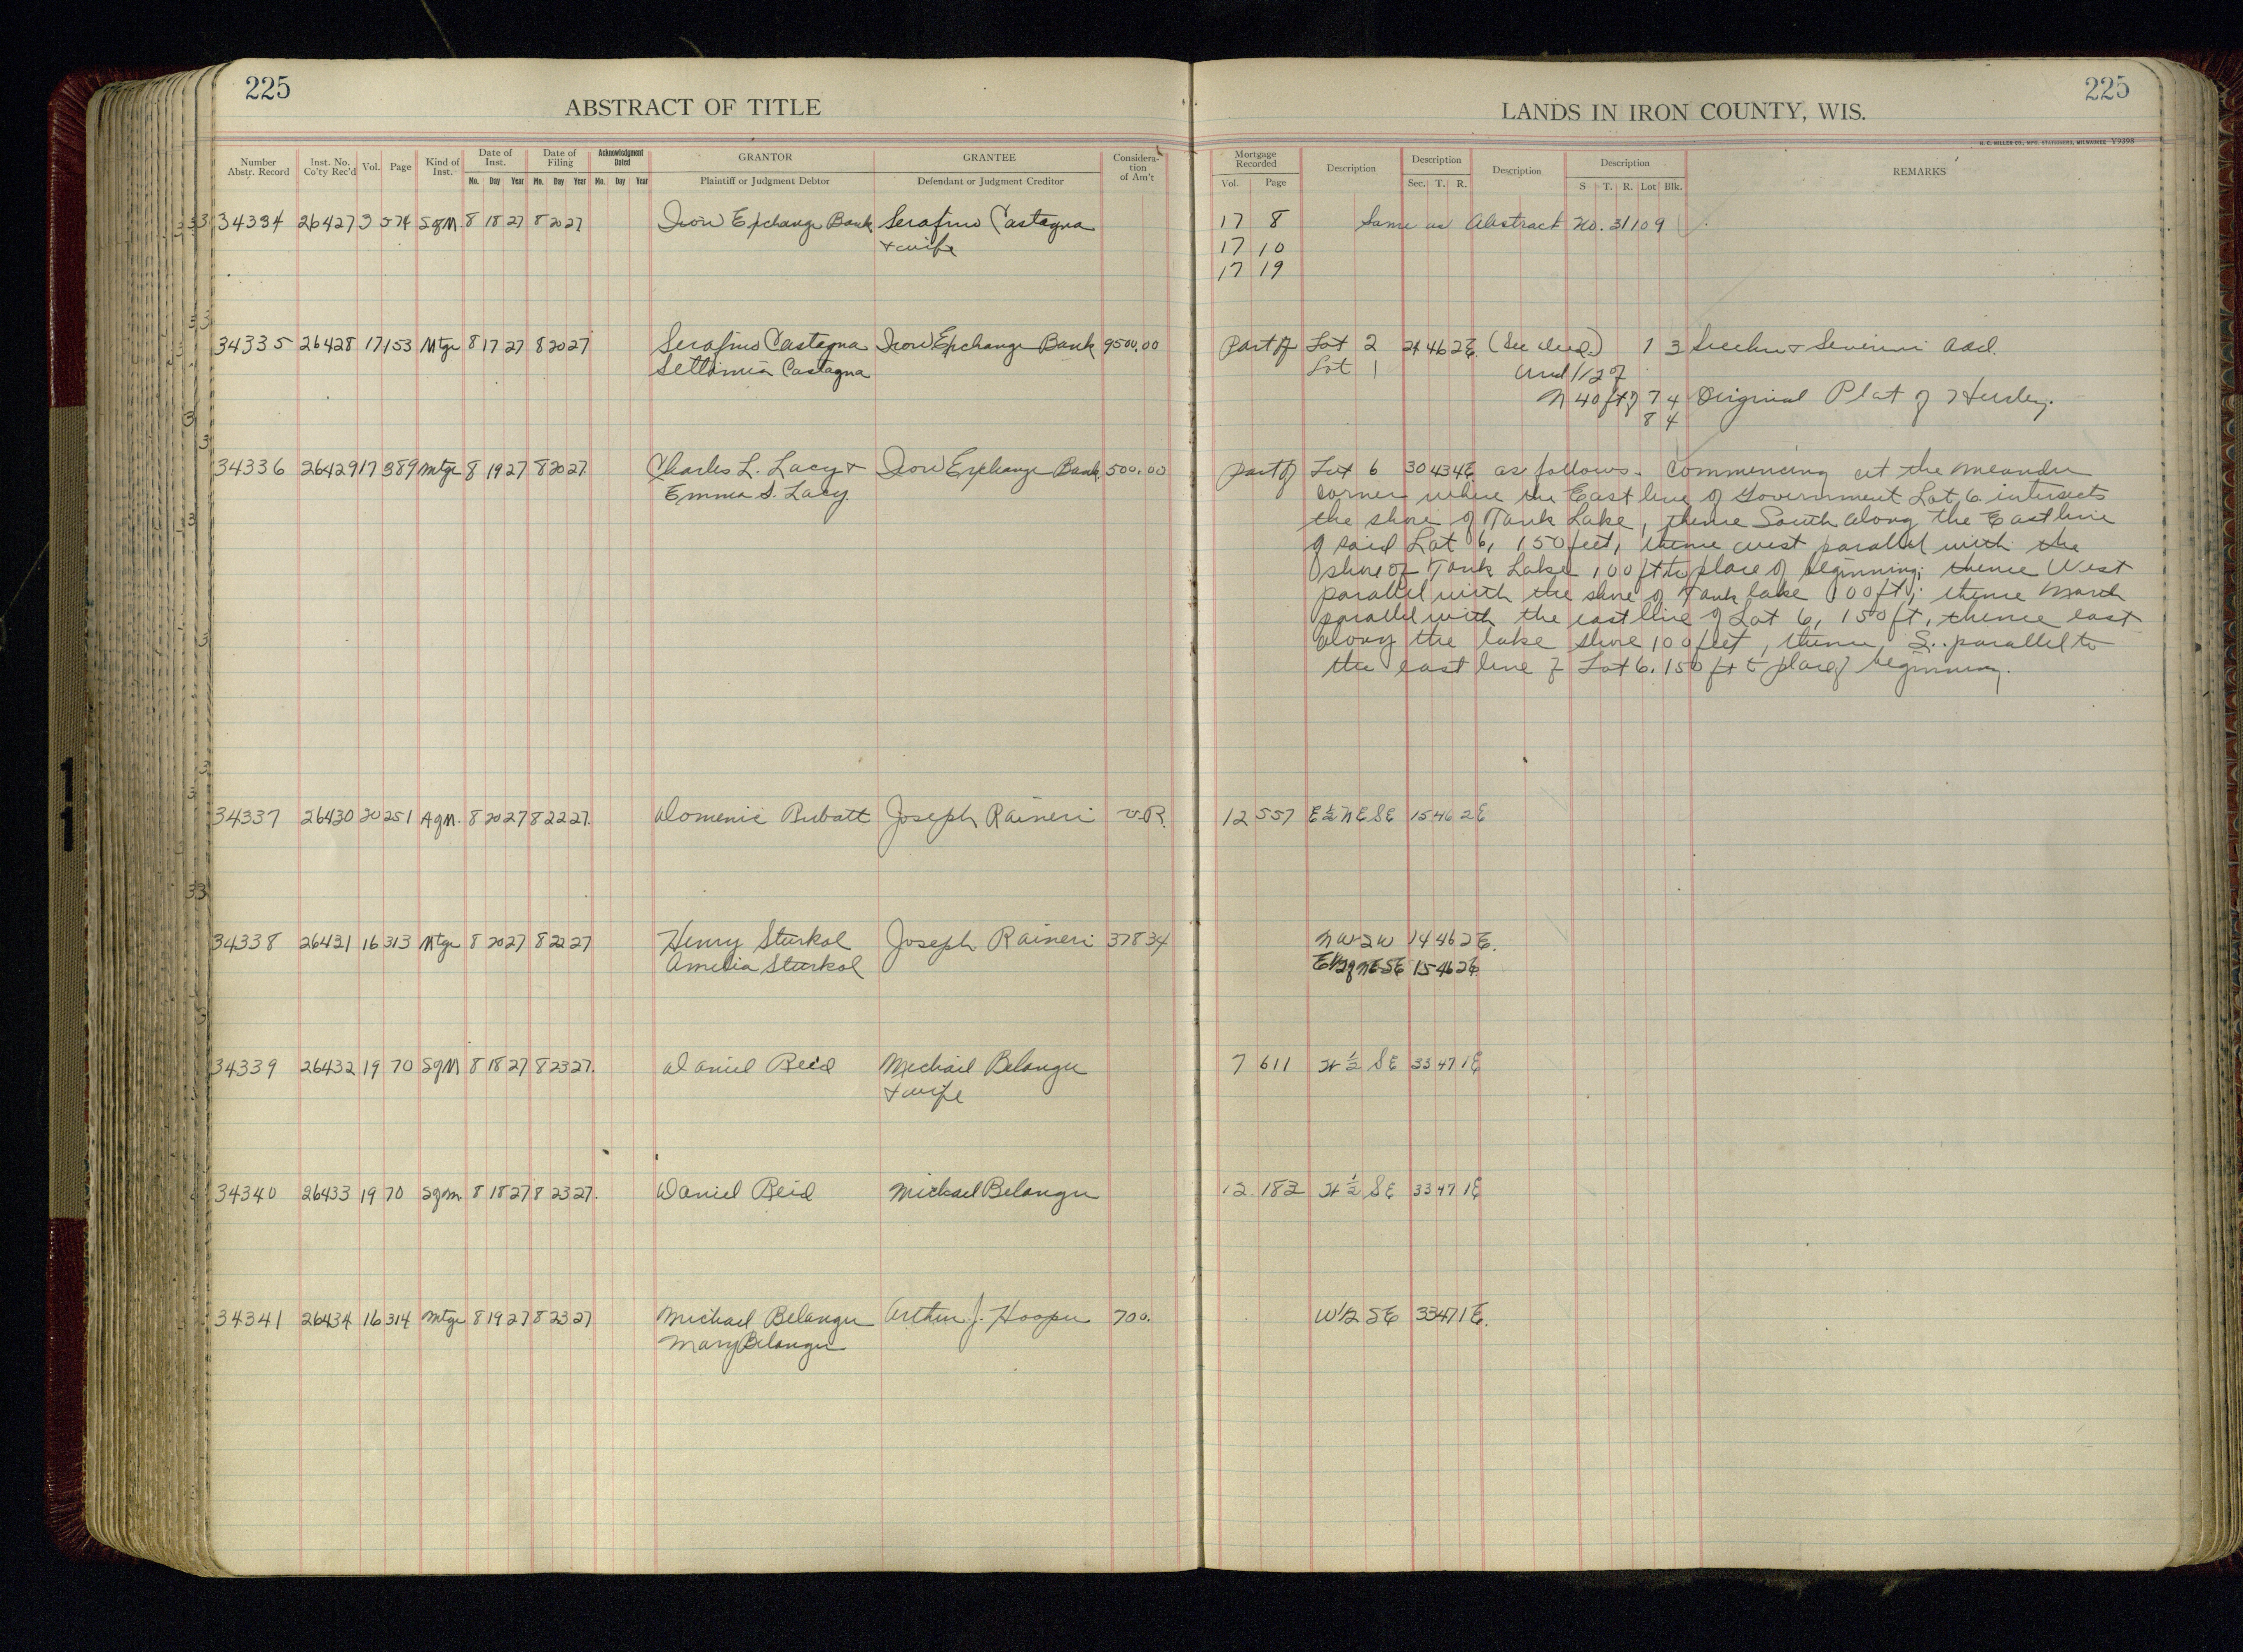 225
ABSTRACT OF TITLE
Number Abstr. Record Inst. No. Co'ty Rec'd Vol. Page Kind of Inst. Date of Inst. Date of Filing Acknowledgment Dated GRANTOR GRANTEE Considera-tion of Am't
Mo. Day Year Mo. Day Year Mo. Day Year Plaintiff or Judgment Debtor Defendant or Judgment Creditor
34334 26427 3 574 SofM. 8 18 27 8 20 27 Iron Exchange Bank Serafino Castagna
+ wife
34335 26428 17 153 Mtge 8 17 27 8 20 27 Serafino Castagna Iron Exchange Bank 9500.00
Settimia Castagna
34336 26429 17 389 Mtge 8 19 27 8 20 27. Charles L. Lacy + Iron Exchange Bank 500.00
Emma S. Lacy.
34337 26430 20 251 AofM. 8 20 27 8 22 27. Domenic Rubatt Joseph Raineri v.R.
34338 26431 16 313 Mtge 8 20 27 8 22 27 Henry Sturkol Joseph Raineri 378 34
Amelia Sturkol
34339 26432 19 70 SofM 8 18 27 8 23 27. Daniel Reid Michail Belanger
+ wife
34340 26433 19 70 Sofm. 8 18 27 8 23 27. Daniel Reid Michael Belanger
34341 26434 16 314 Mtge 8 19 27 8 23 27 Michael Belanger Arthur J. Hooper 700.
Mary Belanger
225
LANDS IN IRON COUNTY, WIS.
H. C. MILLER CO., MFG. STATIONERS, MILWAUKEE V9398
Mortgage Recorded Description Description Description Description REMARKS
Vol. Page Sec. T. R. S T. R. Lot Blk.
17 8 Same as Abstract No. 31109
17 10
17 19
Part of Lot 2 24 46 2E. (See deed.) 1 3 Add.
Lot 1 Und 1/2 of
N 40 ft of 7 4 Original Plat of Hurley.
8 4
Part of Lot 6 30 43 4E as follows. Commencing at the meander
corner where the East line of Government Lot 6 intersects
the shore of Tank Lake, thence South along the East line
of said Lot 6, 150 feet, thence west parallel with the
shore of Tank Lake 100 ft to place of beginning; thence West
parallel with the shore of Tank lake 100 ft; thence North
parallel with the east line of Lot 6, 150 ft, thence east
along the lake shore 100 feet, thence, S.. parallel to
the east line of Lot 6. 150 ft to place of beginning.
12 557 E½ NE SE 15 46 2E
NW SW 14 46 2E.
E1/2 of NE SE 15 46 2E.
7 611 W ½ SE 33 47 1E
12 182 W ½ SE 33 47 1E
W1/2 SE 33 47 1E.